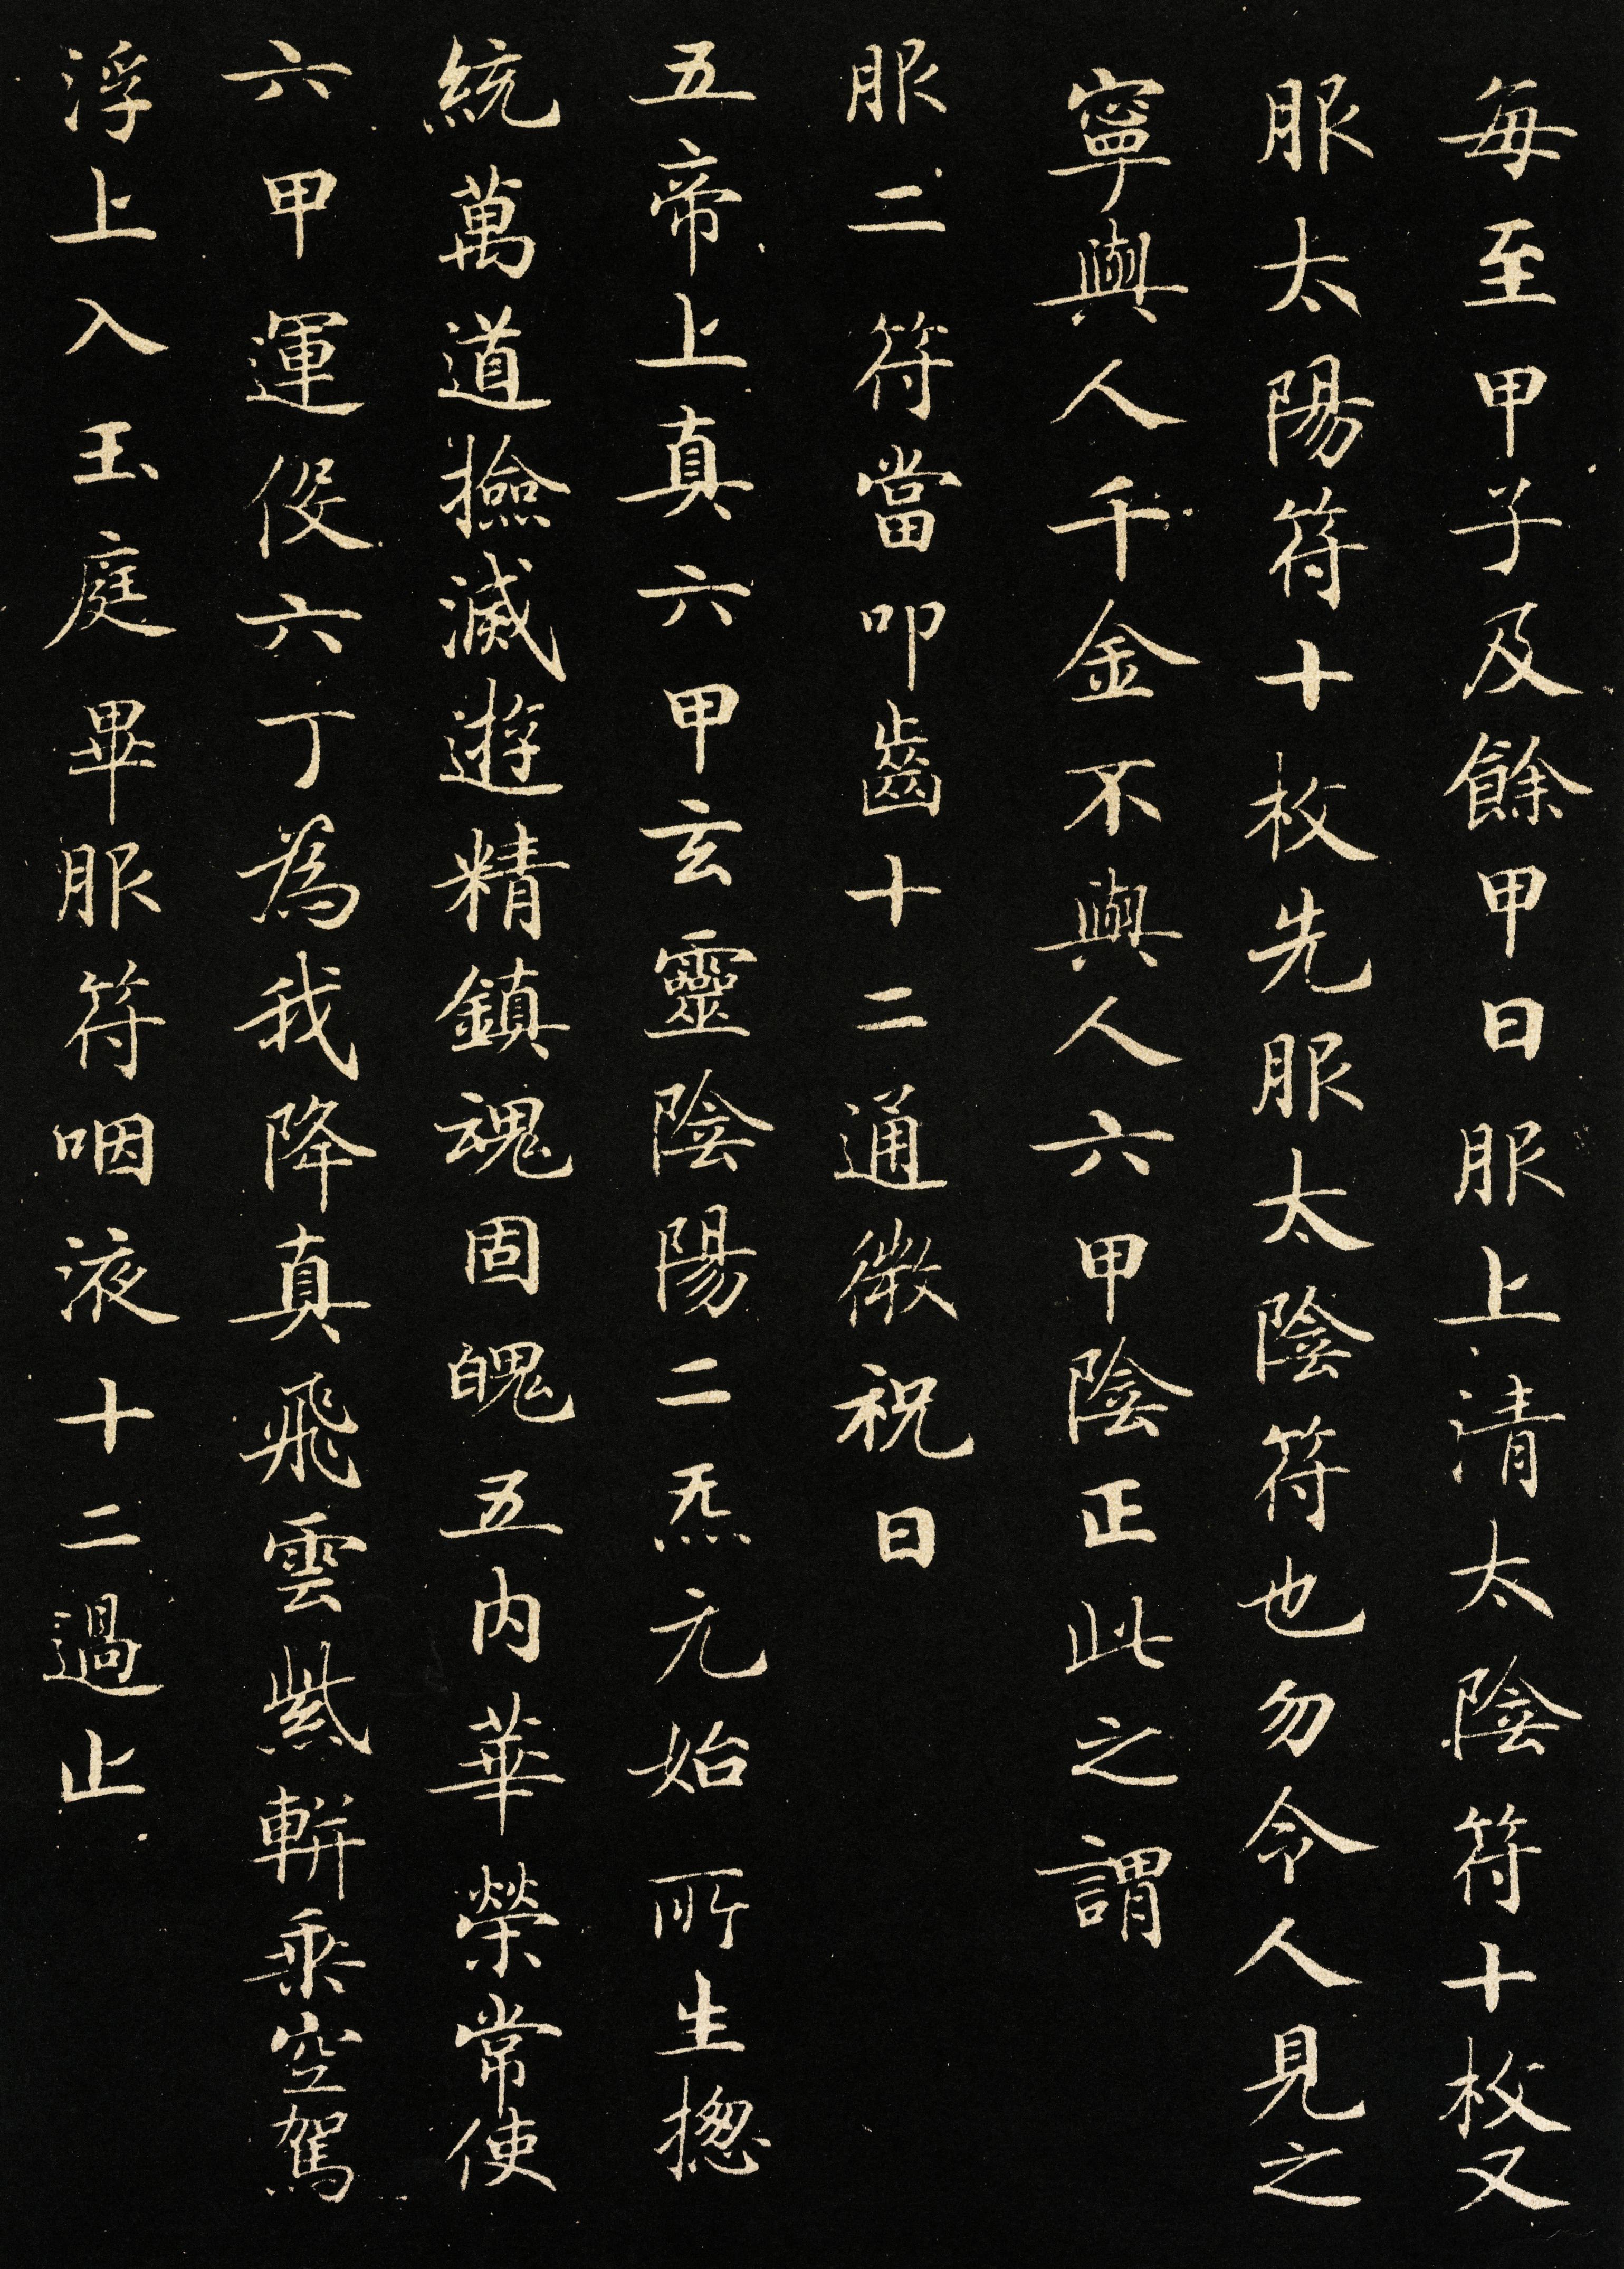 每至甲子及餘甲日服上清太陰符十枚又
服太陽符十枚先服太陰符也勿令人見之
寧與人千金不與人六甲陰正此之謂
服二符當叩齒十二通微祝曰
五帝上真六甲玄靈陰陽二炁元始所生揔
統萬道撿滅遊精鎮魂固魄五内華榮常使
六甲運役六丁為我降真飛雲紫軿乘空駕
浮上入玉庭畢服符咽液十二過止